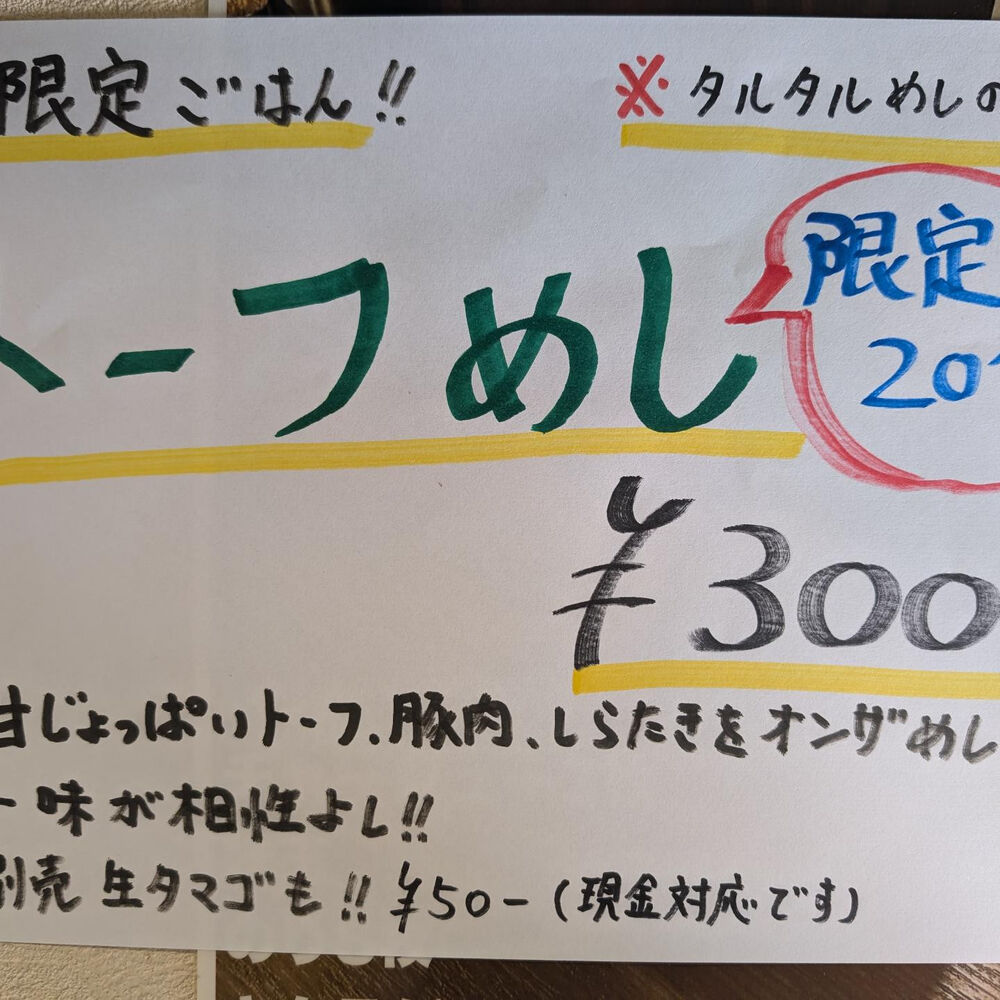 限定ごはん!!
※タルタルめしの
トーフめし
限定
20
¥300
甘じょっぱいトーフ、豚肉、しらたきをオンザめし
一味が相性よし!!
別売 生タマゴも!! ¥50-(現金対応です)